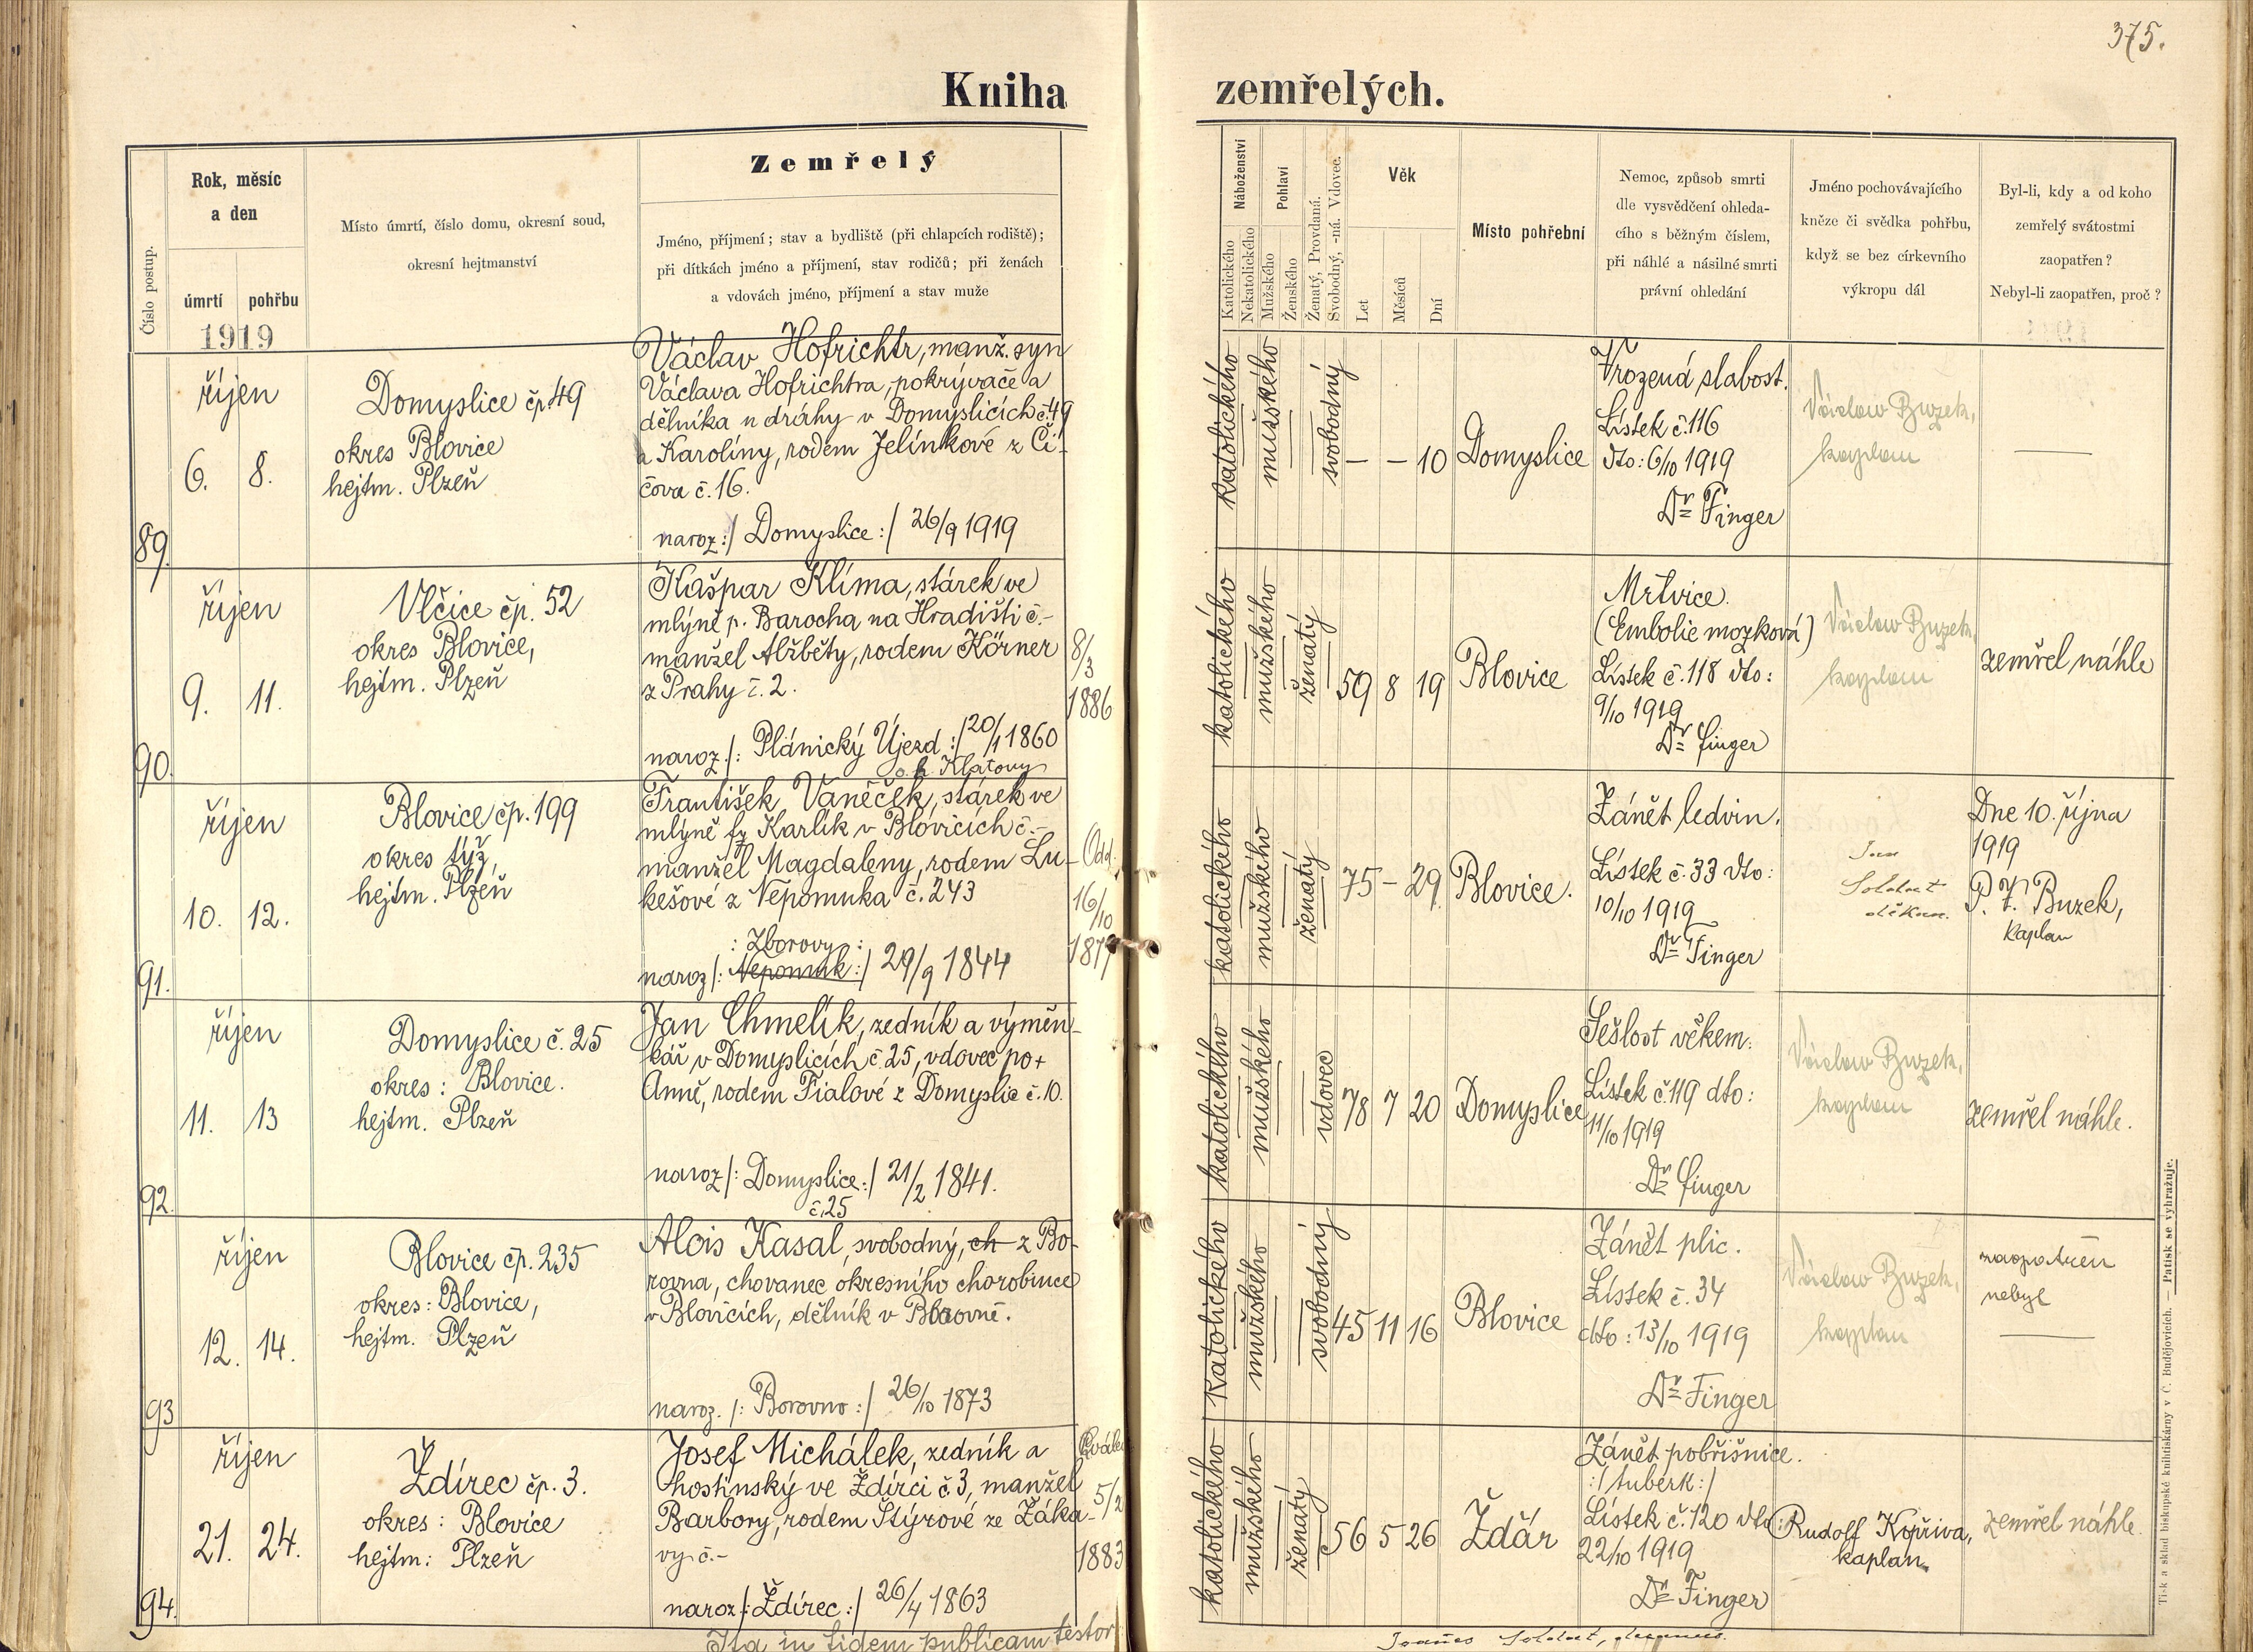 375.
Kniha zemřelých.
Číslo postup.
Rok, měsíc
a den
úmrtí
pohřbu
1919
Místo úmrtí, číslo domu, okresní soud,
okresní hejtmanství
Zemřelý
Jméno, příjmení; stav a bydliště (při chlapcích rodiště);
při dítkách jméno a příjmení, stav rodičů; při ženách
a vdovách jméno, příjmení a stav muže
Náboženství
Katolického
Nekatolického
Pohlaví
Mužského
Ženského
Ženatý, Provdaná.
Svobodný, -ná. Vdovec.
Věk
Let
Měsíců
Dní
Místo pohřební
Nemoc, způsob smrti
dle vysvědčení ohleda-
cího s běžným číslem,
při náhlé a násilné smrti
právní ohledání
Jméno pochovávajícího
kněze či svědka pohřbu,
když se bez církevního
výkropu dál
Byl-li, kdy a od koho
zemřelý svátostmi
zaopatřen?
Nebyl-li zaopatřen, proč?
89.
říjen
6. 8.
Domyslice čp. 49
okres Blovice
hejtm. Plzeň
Václav Hofrichtr, manž. syn
Václava Hofrichtra, pokrývače a
dělníka u dráhy v Domyslicích č. 49
a Karolíny, rodem Jelínkové z Či-
čova č. 16.
naroz :/ Domyslice :/ 26/9 1919
katolického
mužského
svobodný
– – 10
Domyslice
Vrozená slabost.
Lístek č. 116
dto: 6/10 1919
Dr Finger
Václav Buzek,
kaplan
—
90.
říjen
9. 11.
Vlčice čp. 52
okres Blovice,
hejtm. Plzeň
Kašpar Klíma, stárek ve
mlýně p. Barocha na Hradišti č.-
manžel Alžběty, rodem Körner
z Prahy č. 2.
8/3
1886
naroz./: Plánický Újezd :/ 20/1 1860
o. h. Klatovy
katolického
mužského
ženatý
59 8 19
Blovice
Mrtvice.
(Embolie mozková)
Lístek č. 118 dto:
9/10 1919
Dr Finger
Václav Buzek,
kaplan
zemřel náhle
91.
říjen
10. 12.
Blovice čp. 199
okres týž,
hejtm. Plzeň
František Vaněček, stárek ve
mlýně fy Karlík v Blovicích č.-
manžel Magdaleny, rodem Lu-
kešové z Nepomuka č. 243
Odd.
16/10
1877
: Zborovy :
naroz/: Nepomuk :/ 29/9 1844
katolického
mužského
ženatý
75 – 29
Blovice.
Zánět ledvin.
Lístek č. 33 dto:
10/10 1919
Dr Finger
Jan
Soldat
děkan.
Dne 10. října
1919
P. V. Buzek,
kaplan
92.
říjen
11. 13
Domyslice č. 25
okres: Blovice.
hejtm. Plzeň
Jan Chmelík, zedník a výměn-
kář v Domyslicích č. 25, vdovec po +
Anně, rodem Fialové z Domyslic č. 10.
naroz/: Domyslice :/ 21/2 1841.
č. 25
katolického
mužského
vdovec
78 7 20
Domyslice
Sešlost věkem.
Lístek č. 119 dto:
11/10 1919
Dr Finger
Václav Buzek,
kaplan
zemřel náhle.
93
říjen
12. 14.
Blovice čp. 235
okres: Blovice,
hejtm. Plzeň
Alois Kasal, svobodný, ch z Bo-
rovna, chovanec okresního chorobince
v Blovicích, dělník v Borovně.
naroz. /: Borovno :/ 26/10 1873
katolického
mužského
svobodný
45 11 16
Blovice
Zánět plic.
Lístek č. 34
dto: 13/10 1919
Dr Finger
Václav Buzek,
kaplan
zaopatřen
nebyl
—
94.
říjen
21. 24.
Ždírec čp. 3.
okres: Blovice
hejtm: Plzeň
Josef Michálek, zedník a
hostinský ve Ždírci č 3, manžel
Barbory, rodem Štýrové ze Záka-
vy č.-
5/2
1883
naroz/: Ždírec :/ 26/4 1863
katolického
mužského
ženatý
56 5 26
Ždár
Zánět pobřišnice.
:/ tuberk:/
Lístek č. 120 dto:
22/10 1919
Dr Finger
Rudolf Kopřiva,
kaplan
zemřel náhle.
Ita in fidem publicam testor
Joanes Soldat, decanus.
Tisk a sklad biskupské knihtiskárny v Č. Budějovicích. — Patisk se vyhražuje.